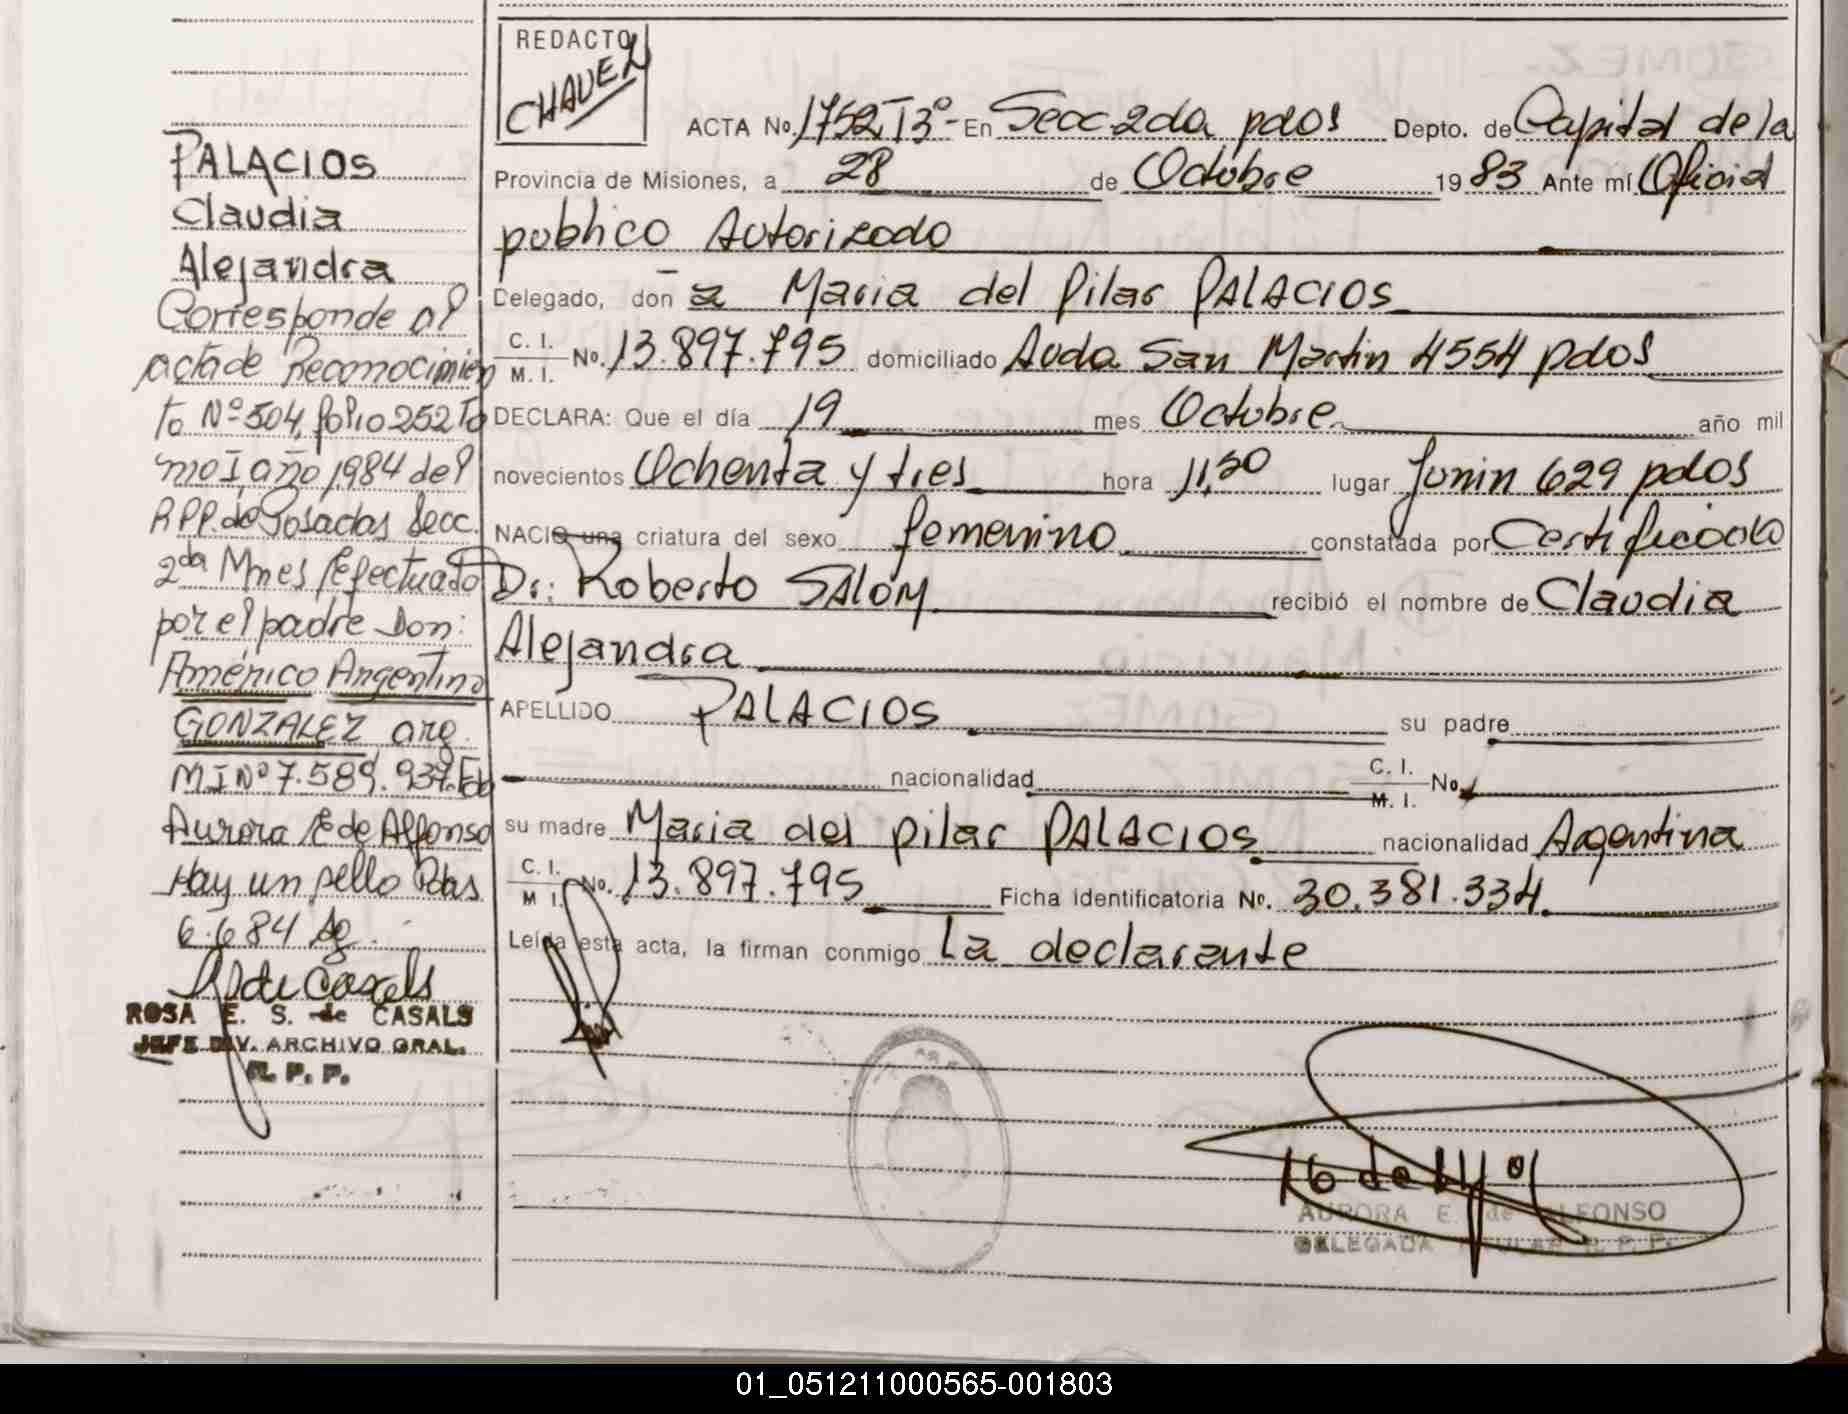 REDACTO
CHAVEZ
ACTA No. 1752 T3º - En Secc 2da pdas Depto. de Capital de la
Provincia de Misiones, a 28 de Octubre 1983 Ante mí Oficial
publico Autorizado
Delegado, don a Maria del Pilar PALACIOS
C. I.
M. I. No. 13.897.795 domiciliado Avda San Martin 4554 pdas
DECLARA: Que el día 19 mes Octubre año mil
novecientos Ochenta y tres hora 11,50 lugar Junin 629 pdas
NACIO una criatura del sexo femenino constatada por Certificado
Dr: Roberto SALOM recibió el nombre de Claudia
Alejandra
APELLIDO PALACIOS su padre
nacionalidad C. I.
M. I. No.
su madre Maria del pilar PALACIOS nacionalidad Argentina
C. I.
M I. No. 13.897.795 Ficha identificatoria No. 30.381.334
Leída esta acta, la firman conmigo La declarante
AURORA E. de ALFONSO
DELEGADA TITULAR R. P. P.
PALACIOS
Claudia
Alejandra
Corresponde al
acta de Reconocimien
to Nº 504, folio 252 To
mo I, año 1984 del
RPP. de Posadas Secc.
2da Mnes Efectuado
por el padre Don:
Américo Argentino
GONZALEZ arg.
MI Nº 7.589.937. Fdo
Aurora E de Alfonso
Hay un sello Pdas
6.6.84
ROSA E. S. de CASALS
JEFE DIV. ARCHIVO GRAL.
R. P. P.
01_051211000565-001803